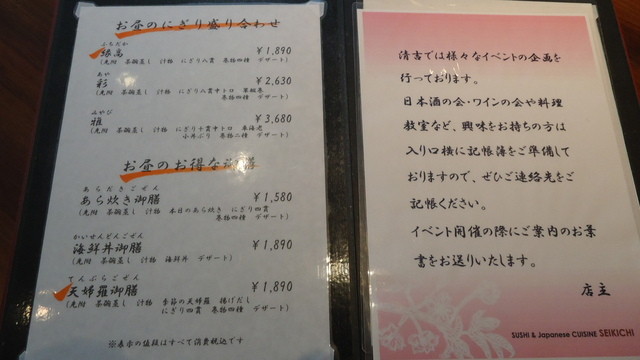 お昼のにぎり盛り合わせ
ふちだか
縁高 ¥1,890
(先附 茶碗蒸し 汁椀 にぎり八貫 巻物四種 デザート)
あや
彩 ¥2,630
(先附 茶碗蒸し 汁椀 にぎり八貫中トロ 単細巻
巻物四種 デザート)
みやび
雅 ¥3,680
(先附 茶碗蒸し 汁椀 にぎり十貫中トロ 車海老
小丼ぶり 巻物二種 デザート)
お昼のお得な御膳
あらだきごぜん
あら炊き御膳 ¥1,580
(先附 茶碗蒸し 汁椀 本日のあら炊き にぎり四貫
巻物四種 デザート)
かいせんどんごぜん
海鮮丼御膳 ¥1,890
(先附 茶碗蒸し 汁椀 海鮮丼 デザート)
てんぷらごぜん
天婦羅御膳 ¥1,890
(先附 茶碗蒸し 汁椀 季節の天婦羅 揚げだし
にぎり四貫 巻物四種 デザート)
※表示の値段はすべて消費税込です
清吉では様々なイベントの企画を
行っております。
日本酒の会・ワインの会や料理
教室など、興味をお持ちの方は
入り口横に記帳簿をご準備して
おりますので、ぜひご連絡先をご
記帳ください。
イベント開催の際にご案内のお葉
書をお送りいたします。
店主
SUSHI & Japanese CUISINE SEIKICHI